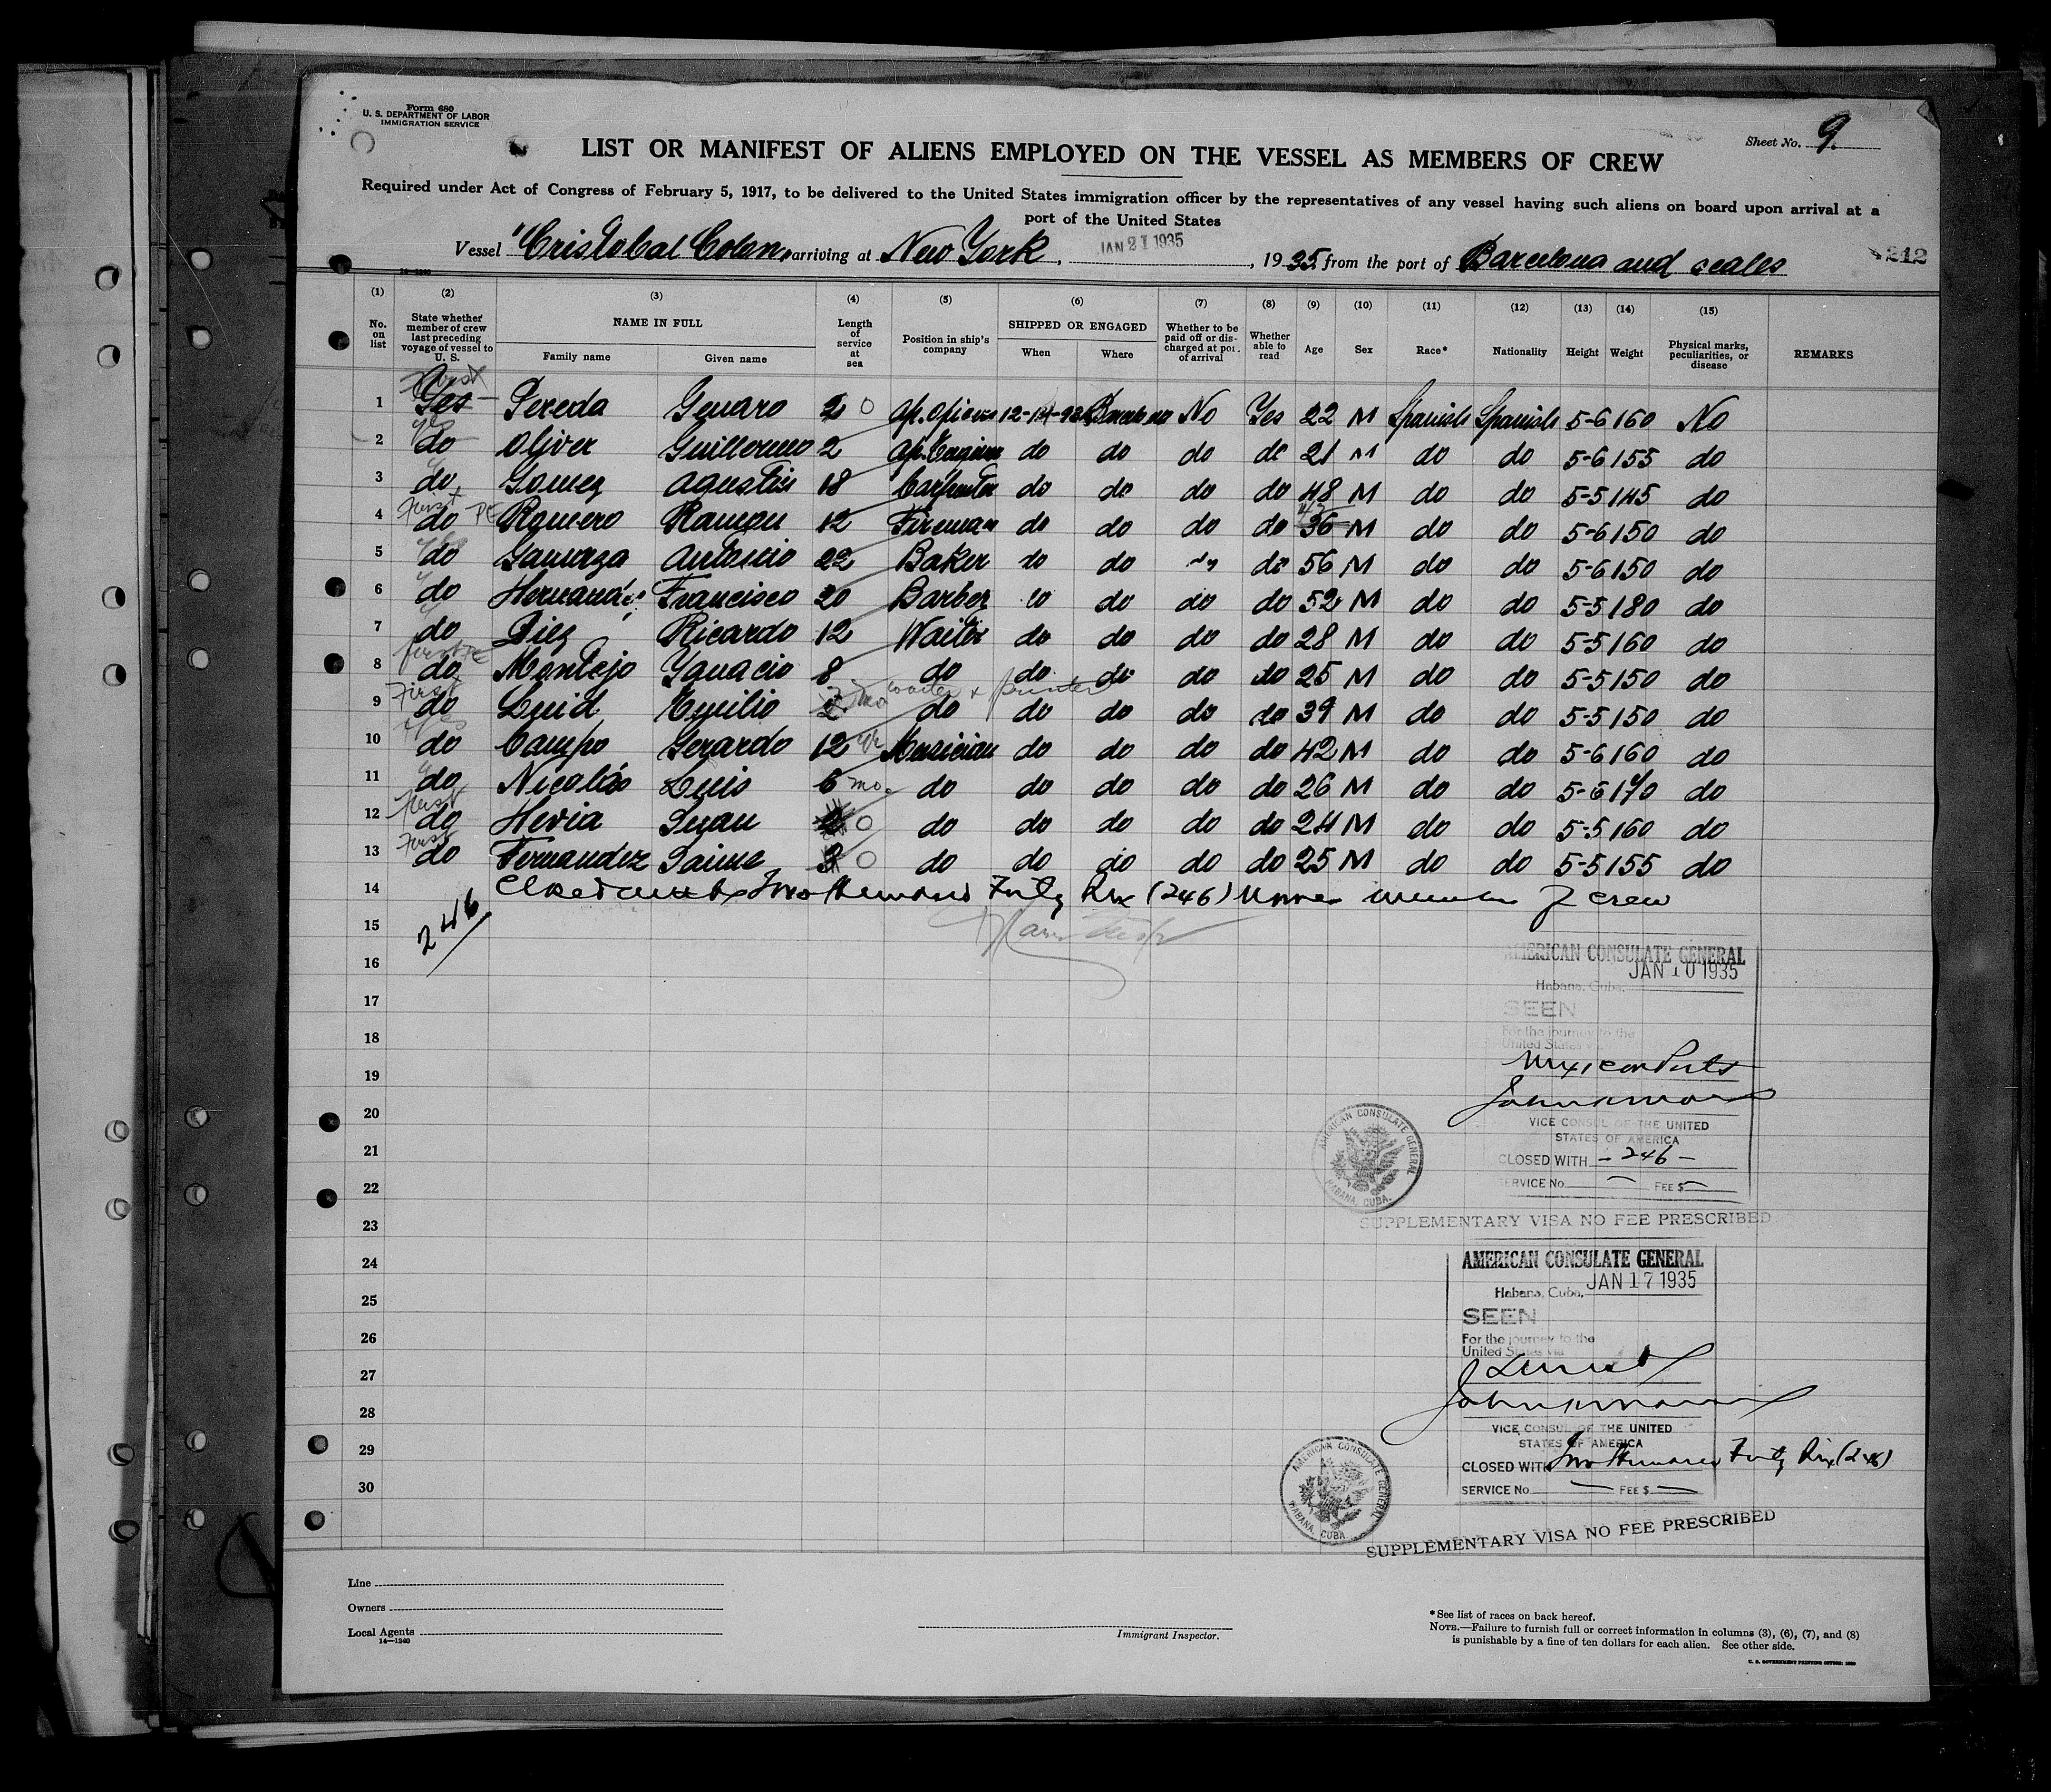 Form 680
U. S. DEPARTMENT OF LABOR
IMMIGRATION SERVICE
Sheet No. 9.
LIST OR MANIFEST OF ALIENS EMPLOYED ON THE VESSEL AS MEMBERS OF CREW
Required under Act of Congress of February 5, 1917, to be delivered to the United States immigration officer by the representatives of any vessel having such aliens on board upon arrival at a
port of the United States
Vessel "Cristobal Colon" arriving at New York, JAN 21 1935, 1935. from the port of Barcelona and scales
212
14-1240
(1) (2) (3) (4) (5) (6) (7) (8) (9) (10) (11) (12) (13) (14) (15)
No. on list
State whether member of crew last preceding voyage of vessel to U. S.
NAME IN FULL
Family name Given name
Length of service at sea
Position in ship's company
SHIPPED OR ENGAGED
When Where
Whether to be paid off or discharged at port of arrival
Whether able to read
Age Sex Race* Nationality Height Weight
Physical marks, peculiarities, or disease
REMARKS
1 first Yes Pereda Genaro 2 0 Barcelona No Yes 22 M Spanish Spanish 5-6 160 No
2 do Oliver Guillermo 2 do do do do 21 M do do 5-6 155 do
3 do Gomez Agustin 18 Carpenter do do do do 48 M do do 5-5 145 do
4 First do PE Romero Ramon 12 Fireman do do do do 36 M do do 5-6 150 do
5 do Antonio 22 Baker do do do 56 M do do 5-6 150 do
6 do Hernandez Francisco 20 Barber do do do do 52 M do do 5-5 180 do
7 do Diez Ricardo 12 Waiter do do do do 28 M do do 5-5 160 do
8 first PE do Montejo Ygnacio 8 do do do do do 25 M do do 5-5 150 do
9 First do Luid Emilio 2 mo waiter & printer do do do do do 39 M do do 5-5 150 do
10 Yes do Campo Gerardo 12 Musician do do do do 42 M do do 5-6 160 do
11 do Nicolás Luis 6 mo. do do do do do 26 M do do 5-6 170 do
12 first do Hevia Juan 0 do do do do do 24 M do do 5-5 160 do
13 First do Fernandez Jaime 0 do do do do do 25 M do do 5-5 155 do
14 Closed with Two Hundred Forty Six (246) names members of crew
15 246
16
17
18
19
20
21
22
23
24
25
26
27
28
29
30
AMERICAN CONSULATE GENERAL
JAN 10 1935
Habana, Cuba,
SEEN
For the journey to the
United States via
Mexican Ports
VICE CONSUL OF THE UNITED
STATES OF AMERICA
CLOSED WITH - 246 -
SERVICE No. FEE $
AMERICAN CONSULATE GENERAL
HABANA, CUBA.
SUPPLEMENTARY VISA NO FEE PRESCRIBED
AMERICAN CONSULATE GENERAL
JAN 17 1935
Habana, Cuba,
SEEN
For the journey to the
United States via
Direct
VICE CONSUL OF THE UNITED
STATES OF AMERICA
CLOSED WITH Two Hundred Forty Six (246)
SERVICE No FEE $
AMERICAN CONSULATE GENERAL
HABANA, CUBA
SUPPLEMENTARY VISA NO FEE PRESCRIBED
Line
Owners
Local Agents
14-1240
Immigrant Inspector.
*See list of races on back hereof.
NOTE.—Failure to furnish full or correct information in columns (3), (6), (7), and (8)
is punishable by a fine of ten dollars for each alien. See other side.
U. S. GOVERNMENT PRINTING OFFICE